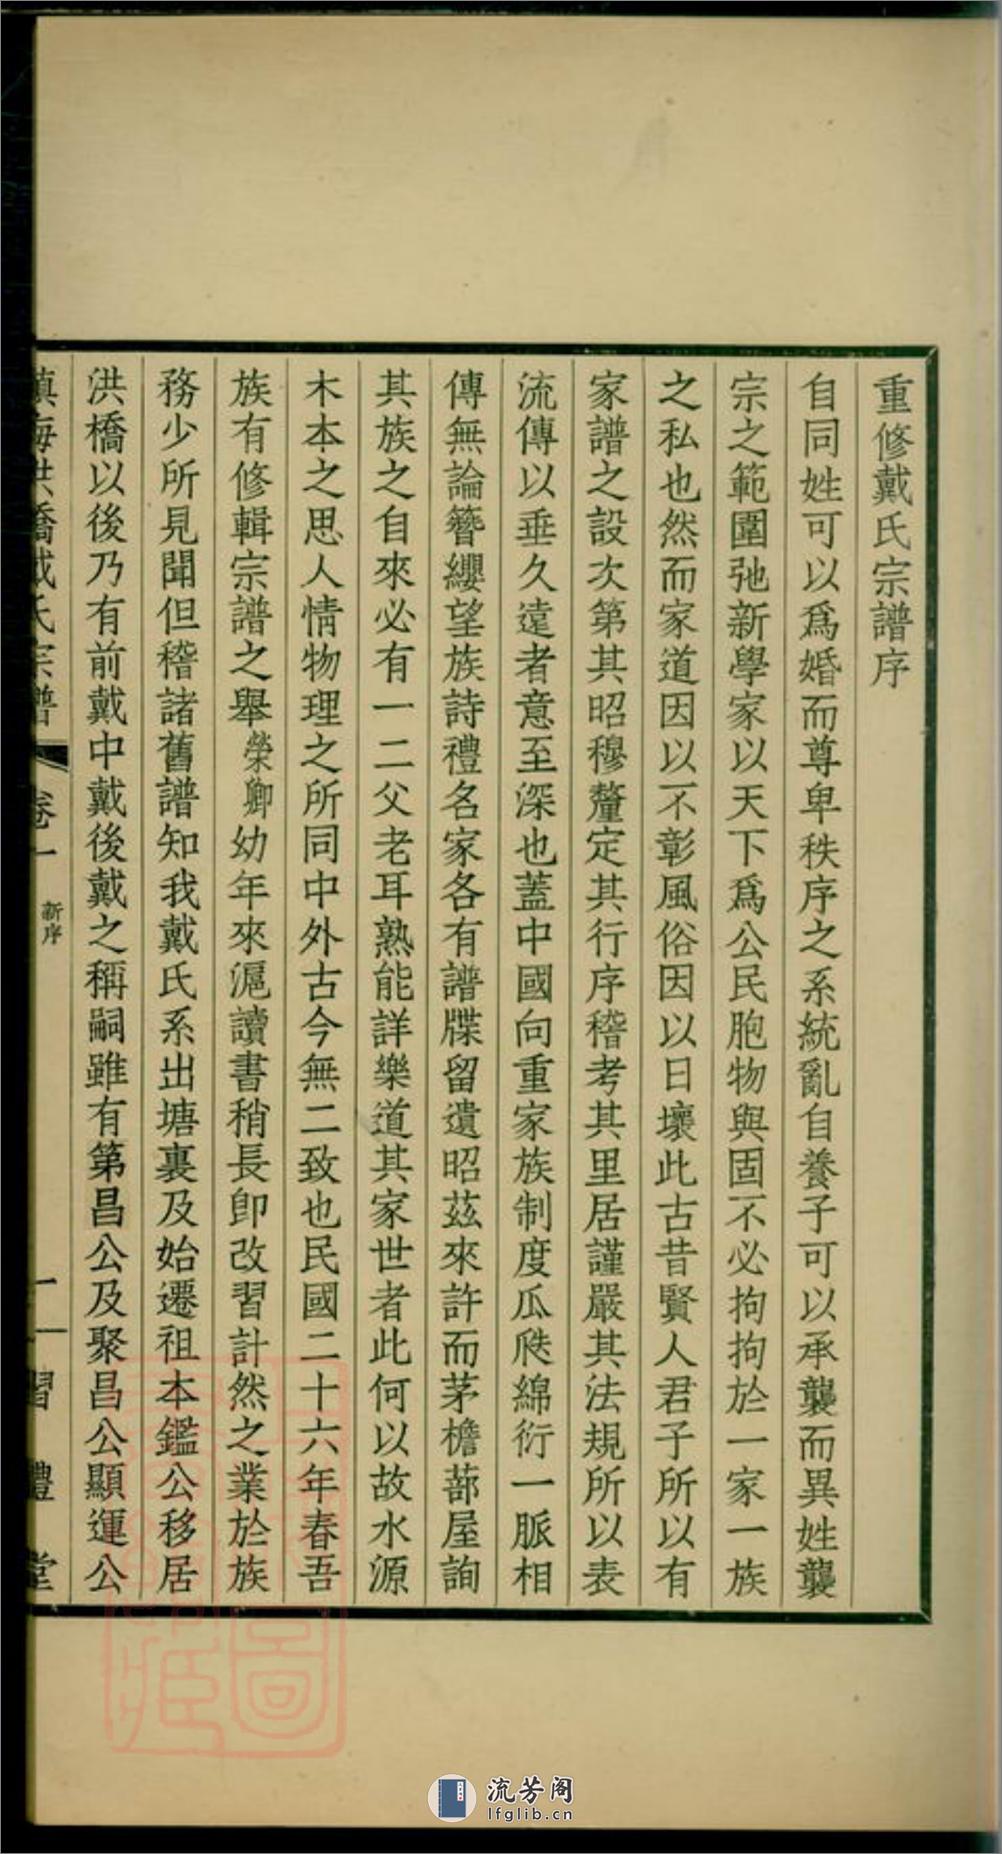 重修戴氏宗譜序
自同姓可以爲婚而尊卑秩序之系統亂自養子可以承襲而異姓襲
宗之範圍弛新學家以天下爲公民胞物與固不必拘拘於一家一族
之私也然而家道因以不彰風俗因以日壞此古昔賢人君子所以有
家譜之設次第其昭穆釐定其行序稽考其里居謹嚴其法規所以表
流傳以垂久遠者意至深也蓋中國向重家族制度瓜瓞綿衍一脈相
傳無論簪纓望族詩禮名家各有譜牒留遺昭茲來許而茅檐蔀屋詢
其族之自來必有一二父老耳熟能詳樂道其家世者此何以故水源
木本之思人情物理之所同中外古今無二致也民國二十六年春吾
族有修輯宗譜之舉榮卿幼年來滬讀書稍長卽改習計然之業於族
務少所見聞但稽諸舊譜知我戴氏系出塘裏及始遷祖本鑑公移居
洪橋以後乃有前戴中戴後戴之稱嗣雖有第昌公及聚昌公顯運公
鎮海洪橋戴氏宗譜 卷一 新序 一 習禮堂
流芳阁
lfglib.cn